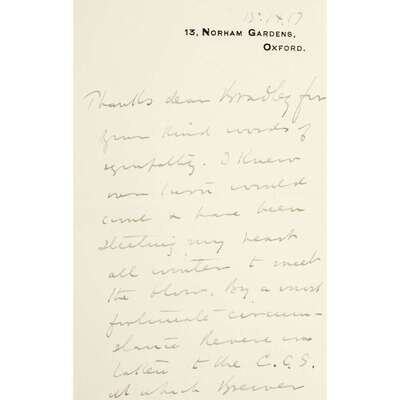 13, NORHAM GARDENS,
OXFORD.
Thanks dear Bradley for
your kind words of
sympathy. I knew
our turn would
come & have been
steeling my heart
all winter to meet
the blow. By a most
fortunate circum-
stance Revere was
taken to the C.C.S.
at which Brewer